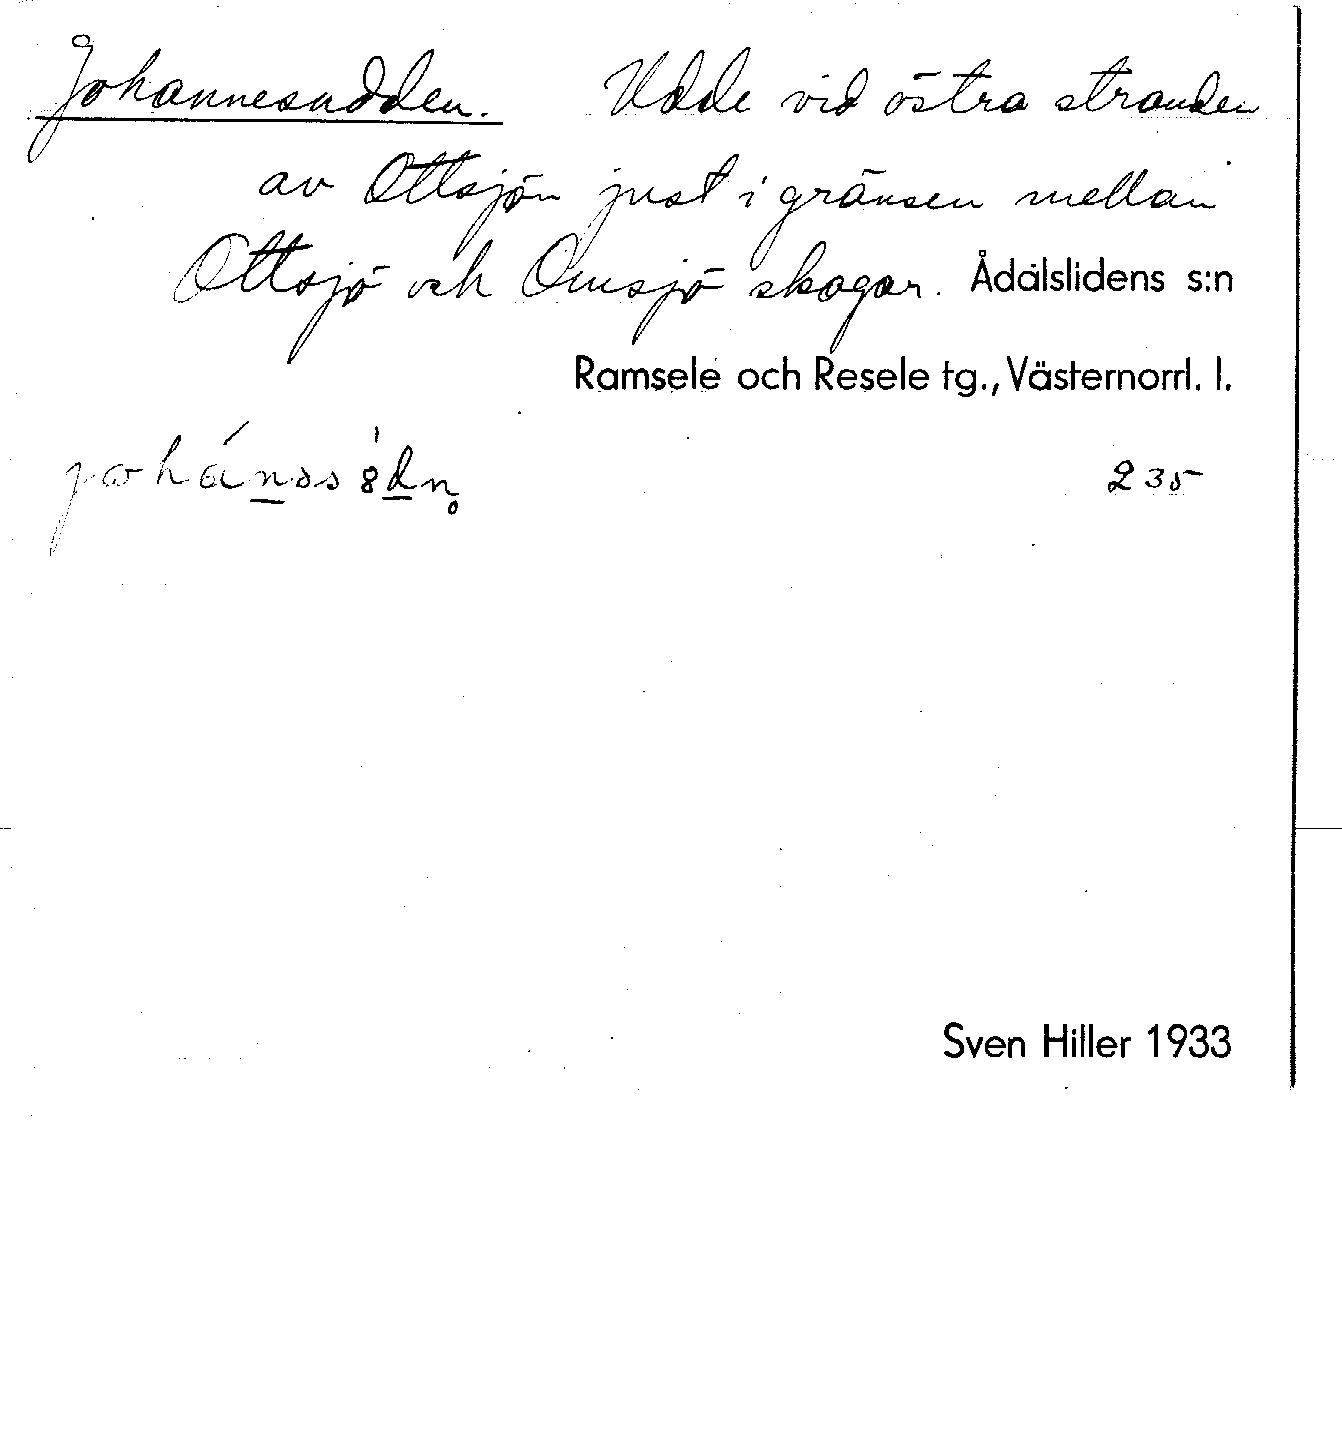 Johannesudden. Udde vid östra stranden
av Ottsjön just i gränsen mellan
Ottsjö och Omsjö skogar. Ådalslidens s:n
Ramsele och Resele tg., Västernorrl. l.
235
Sven Hiller 1933